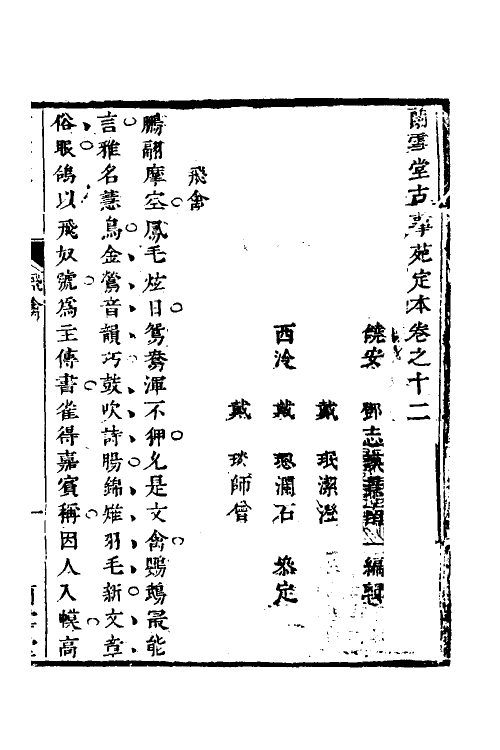 蘭雪堂古事苑定本卷之十二
饒安 鄧志謨 編輯
戴 珉潔澄
西泠 戴 㻶澗石 叅定
戴 琰師儋
飛禽
鵬翮摩空鳳毛炫日鴛鴦渾不狎允是文禽鸚鵡最能
言雅名慧鳥金鶯音韻巧鼓吹詩腸錦雉羽毛新文章
俗眼鴿以飛奴號爲主傳書雀得嘉賓稱因人入幙高
飛禽
一